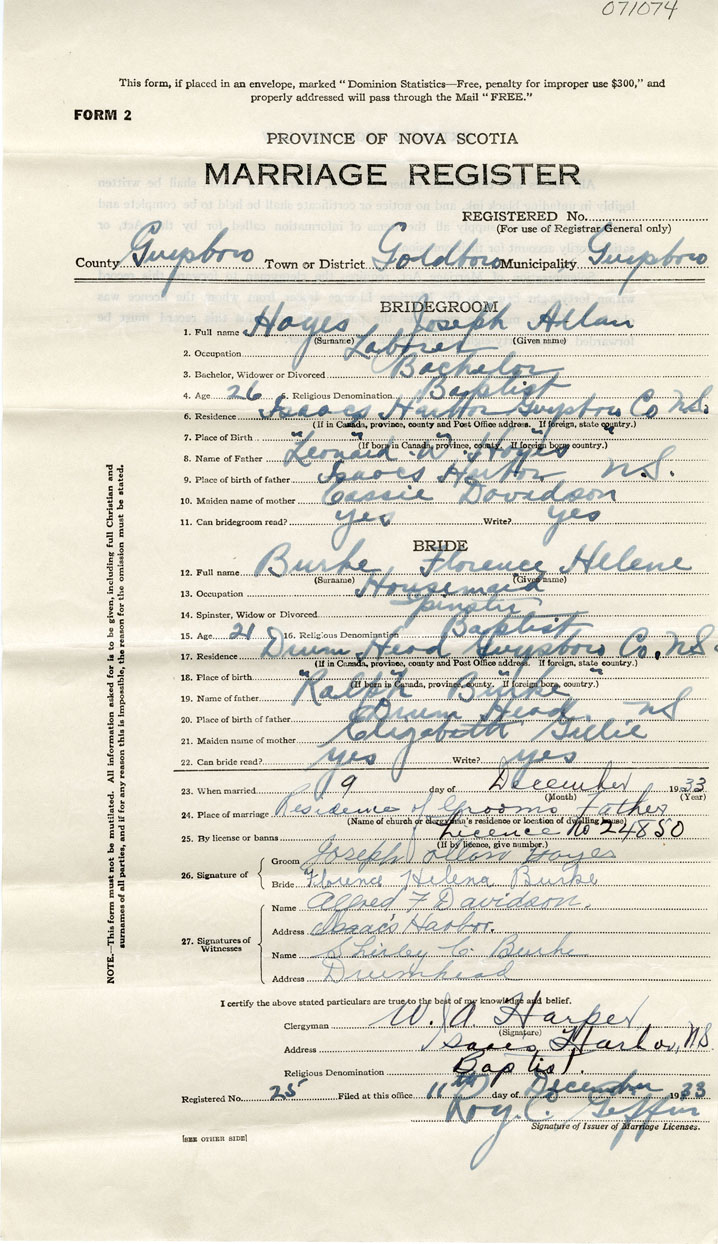 071074
This form, if placed in an envelope, marked "Dominion Statistics—Free, penalty for improper use $300," and
properly addressed will pass through the Mail "FREE."
FORM 2
PROVINCE OF NOVA SCOTIA
MARRIAGE REGISTER
REGISTERED No.
(For use of Registrar General only)
County Guysboro Town or District Goldboro Municipality Guysboro
BRIDEGROOM
1. Full name Hayes Joseph Allan
(Surname) (Given name)
2. Occupation Laborer
3. Bachelor, Widower or Divorced Bachelor
4. Age 26 5. Religious Denomination Baptist
6. Residence Isaacs Harbor Guysboro Co N.S.
(If in Canada, province, county and Post Office address. If foreign, state country.)
7. Place of Birth " " " "
(If born in Canada, province, county. If foreign born, country.)
8. Name of Father Leonard W. Hayes
9. Place of birth of father Isaacs Harbor N.S.
10. Maiden name of mother Cassie Davidson
11. Can bridegroom read? yes Write? yes
BRIDE
12. Full name Burke Florence Helene
(Surname) (Given name)
13. Occupation Housemaid
14. Spinster, Widow or Divorced Spinster
15. Age 21 16. Religious Denomination Baptist
17. Residence Drum Head Guysboro Co. N.S.
(If in Canada, province, county and Post Office address. If foreign, state country.)
18. Place of birth " " "
(If born in Canada, province, county. If foreign born, country.)
19. Name of father Ralph Burke
20. Place of birth of father Drum Head NS
21. Maiden name of mother Elizabeth
22. Can bride read? yes Write? yes
23. When married 9 day of December 1933
(Month) (Year)
24. Place of marriage Residence of Grooms Father
(Name of church or clergyman's residence or location of dwelling house)
25. By license or banns Licence No 24850
(If by licence, give number.)
26. Signature of
Groom Joseph Allan Hayes
Bride Florence Helena Burke
27. Signatures of Witnesses
Name Alfred F Davidson.
Address Isaac's Harbor.
Name Shirley C. Burke
Address Drumhead
I certify the above stated particulars are true to the best of my knowledge and belief.
Clergyman W. A. Harper
(Signature)
Address Isaac's Harbor, N.S.
Religious Denomination Baptist.
Registered No. 25 Filed at this office 11th day of December 1933
Roy C. Giffin
Signature of Issuer of Marriage Licenses.
[SEE OTHER SIDE]
NOTE.—This form must not be mutilated. All information asked for is to be given, including full Christian and
surnames of all parties, and if for any reason this is impossible, the reason for the omission must be stated.